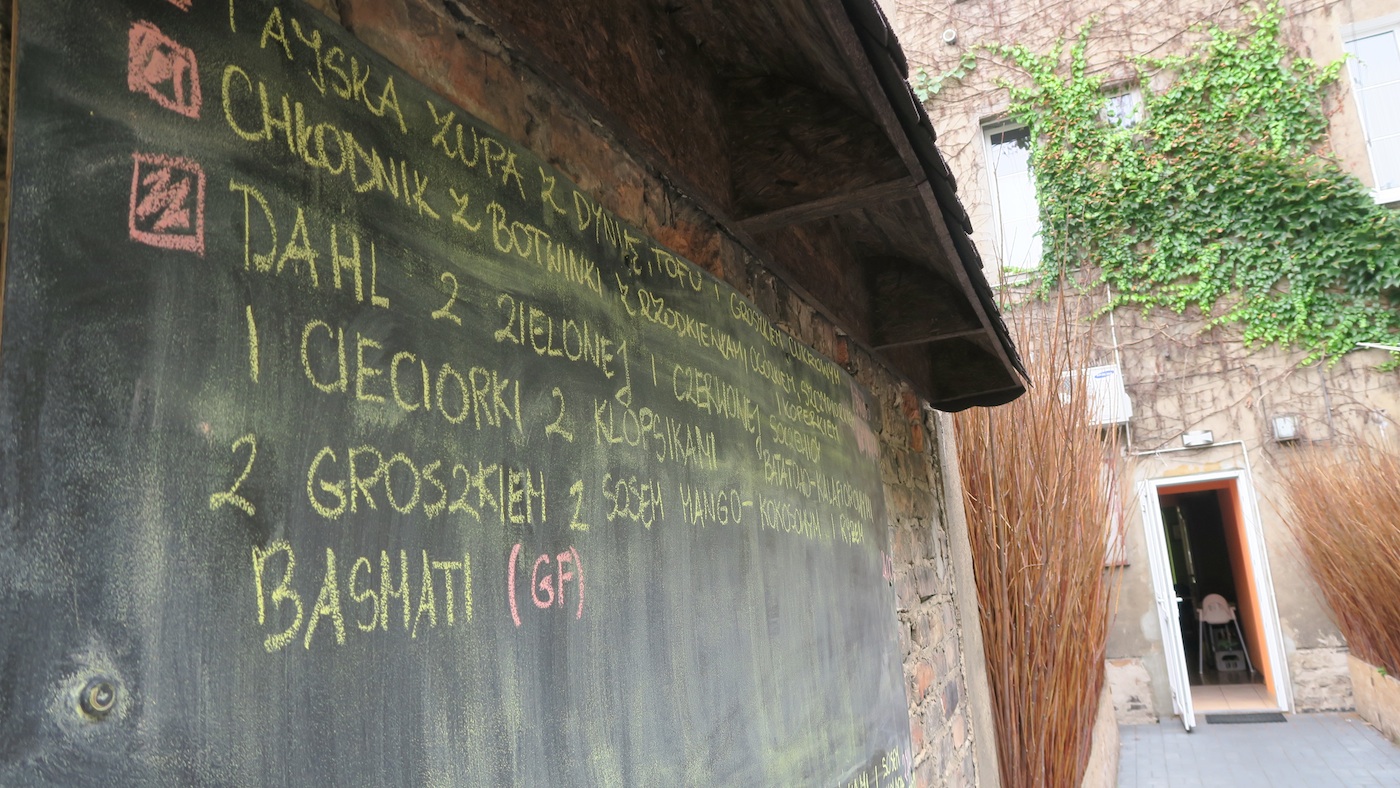 TAJSKA ZUPA Z DYNIĄ, TOFU I GROSZKIEM CUKROWYM
CHŁODNIK Z BOTWINKI Z RZODKIEWKAMI OGÓRKIEM
I KOPERKIEM
DAHL Z ZIELONEJ I CZERWONEJ SOCZEWICY
I CIECIORKI Z KLOPSIKAMI BATATOWO-KALAFIOROWYMI
Z GROSZKIEM Z SOSEM MANGO-KOKOSOWYM I RYŻEM
BASMATI (GF)
I SOSEM